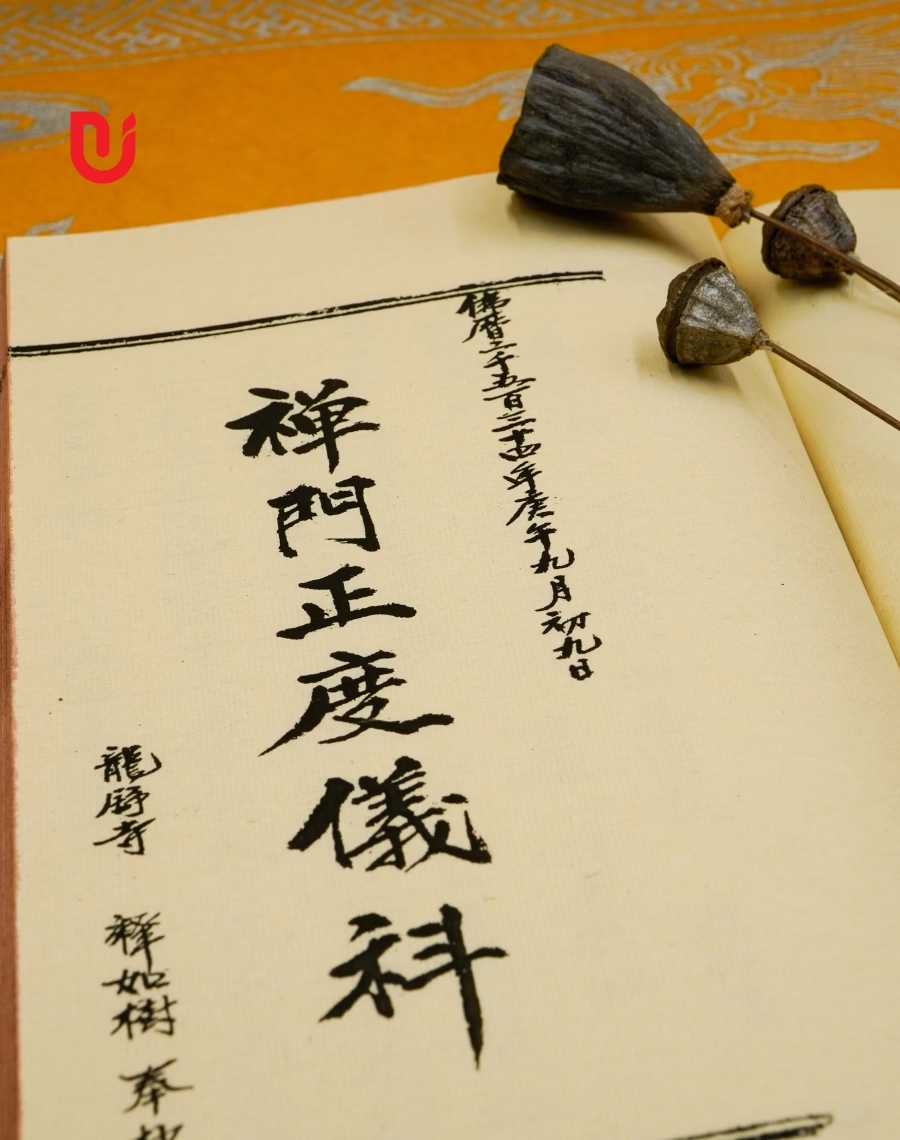 佛暦二千五百三十四年庚午九月初九日
禅門正度儀科
龍舒寺 释如樹 奉